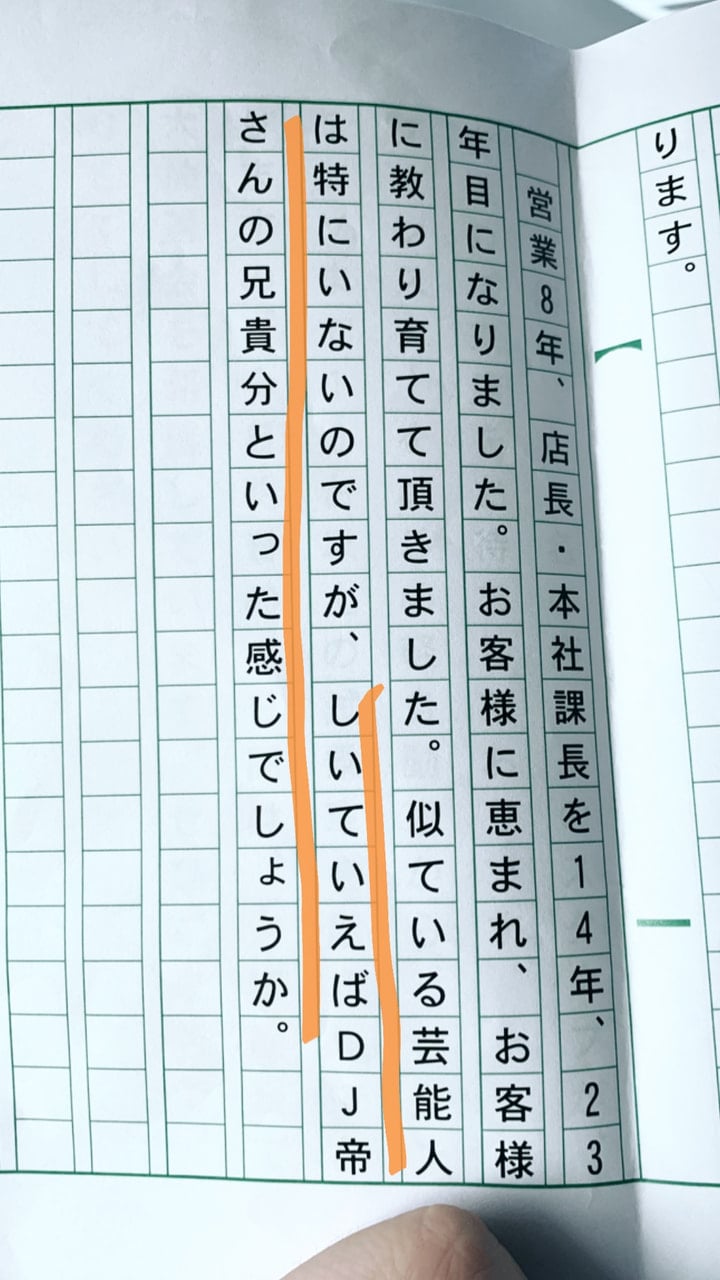 ります。
営業8年、店長・本社課長を14年、23
年目になりました。お客様に恵まれ、お客様
に教わり育てて頂きました。似ている芸能人
は特にいないのですが、しいていえばDJ帝
さんの兄貴分といった感じでしょうか。